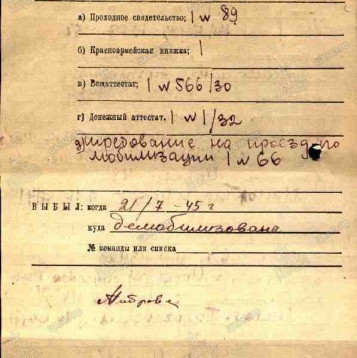 а) Проходное свидетельство; 1 N 89
б) Красноармейская книжка; 1
в) Вещаттестат; 1 N 566/30
г) Денежный аттестат. 1 N 1/32
д) требование на проезд по
мобилизации 1 N 66
ВЫБЫЛ: когда 21/7-45 г
куда демобилизована
№ команды или списка